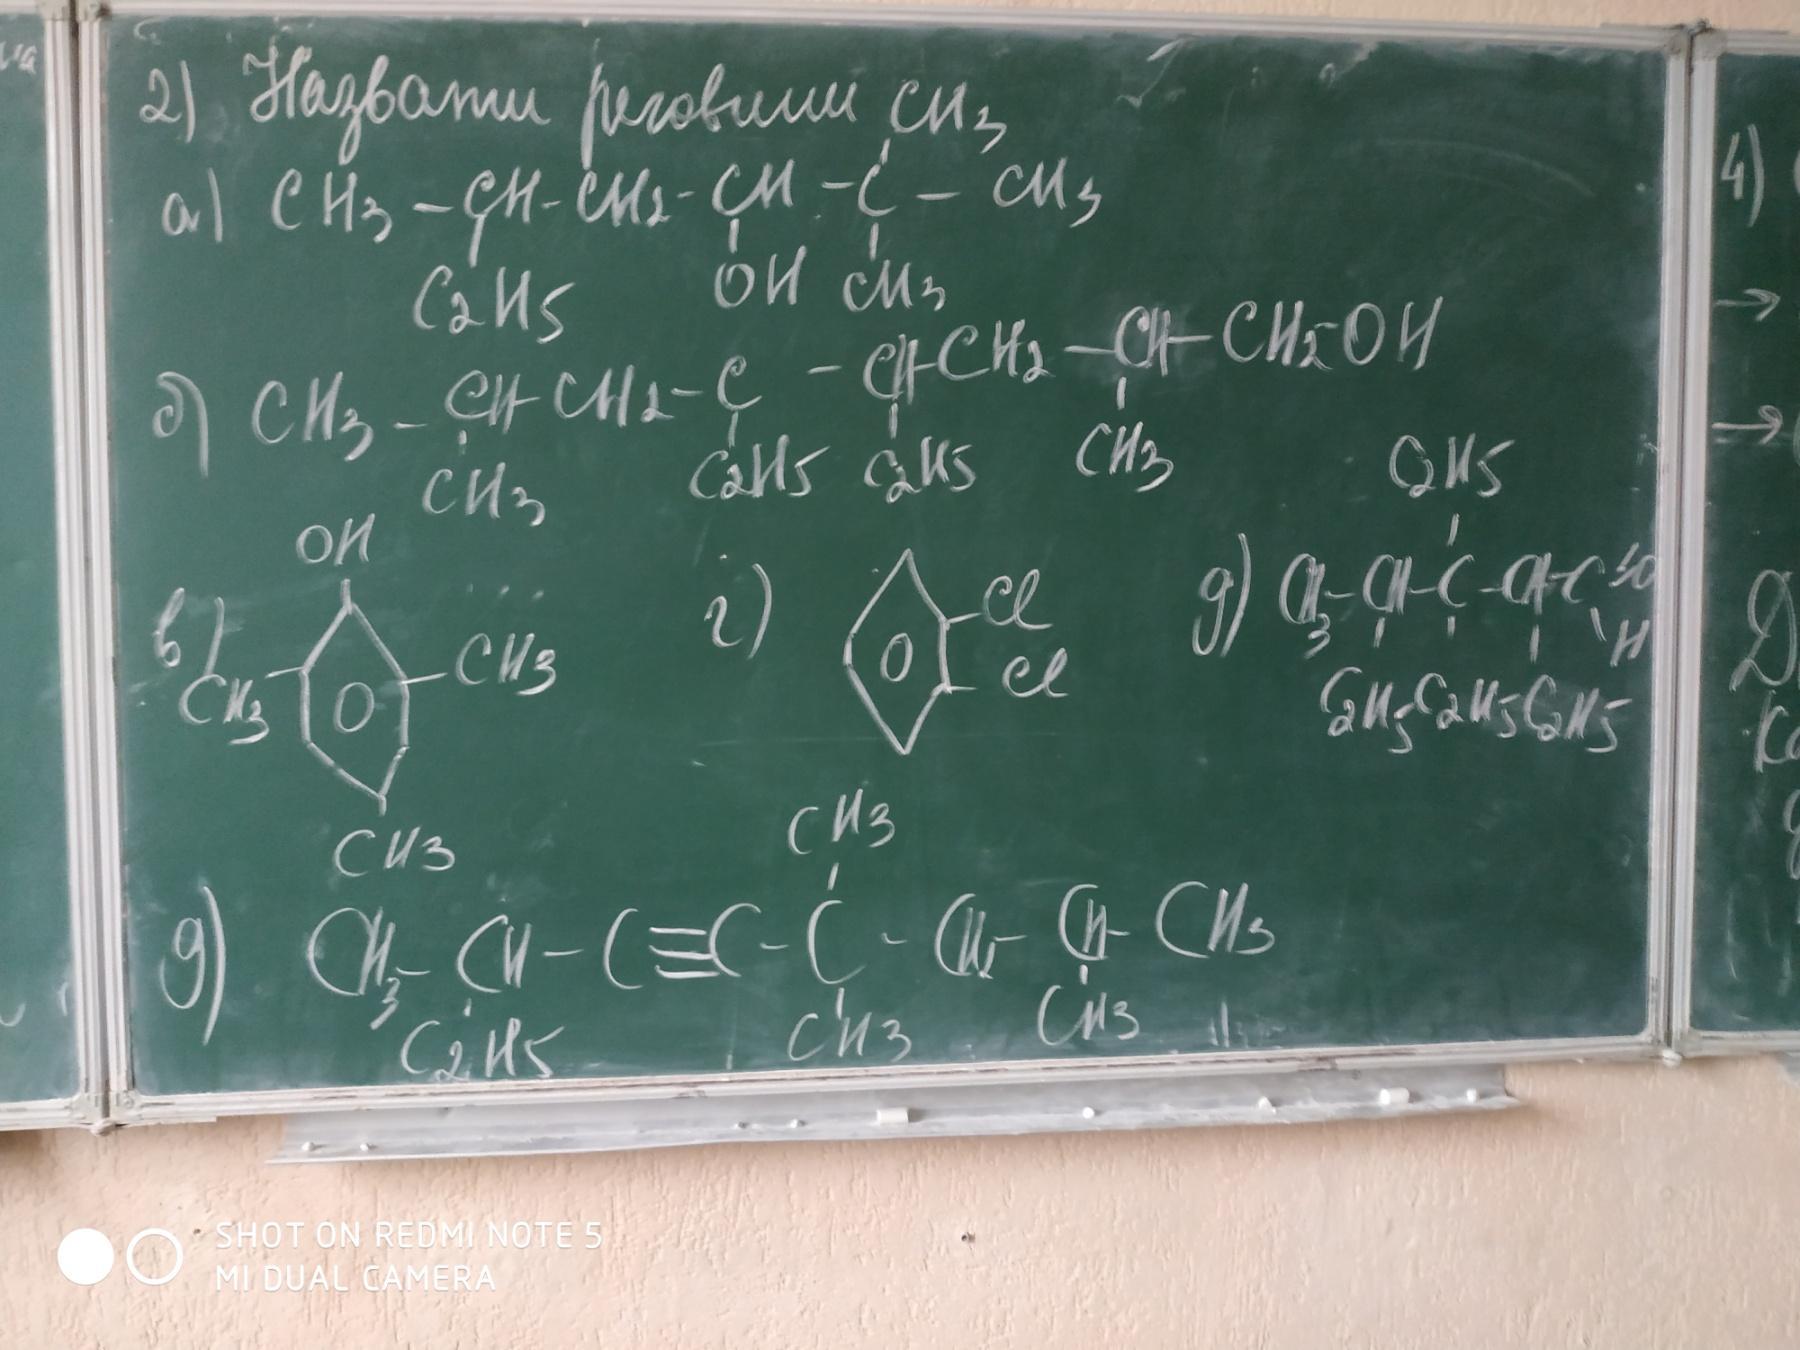 2) Назвати речовини CH3
а) CH3 – CH – CH2 – CH – C – CH3
C2H5 OH CH3
б) CH3 – CH – CH2 – C – CH – CH2 – CH – CH2 – OH
CH3 C2H5 C2H5 CH3
C2H5
OH
в) CH3 O CH3
CH3
г) O Cl
Cl
д) CH3 – CH – C – CH – C O
H
C2H5 C2H5 C2H5
CH3
д) CH3 – CH – C ≡ C – C – CH2 – CH – CH3
C2H5 CH3 CH3
4)
→
→
SHOT ON REDMI NOTE 5
MI DUAL CAMERA